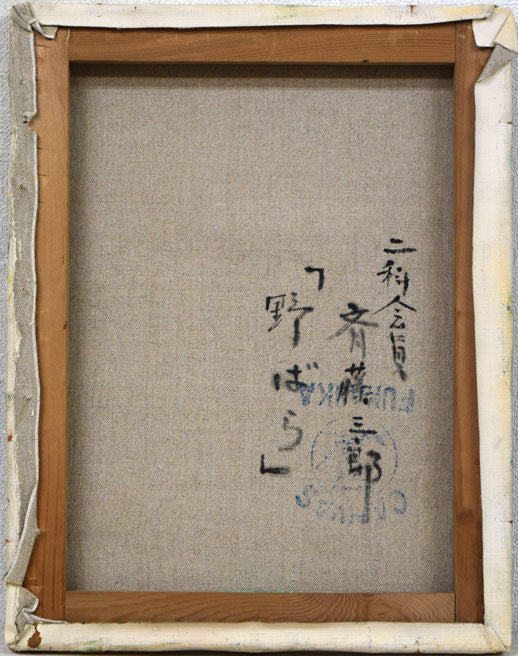 二科会員
斉藤三郎
「野ばら」
FUNAOKA
CANVAS